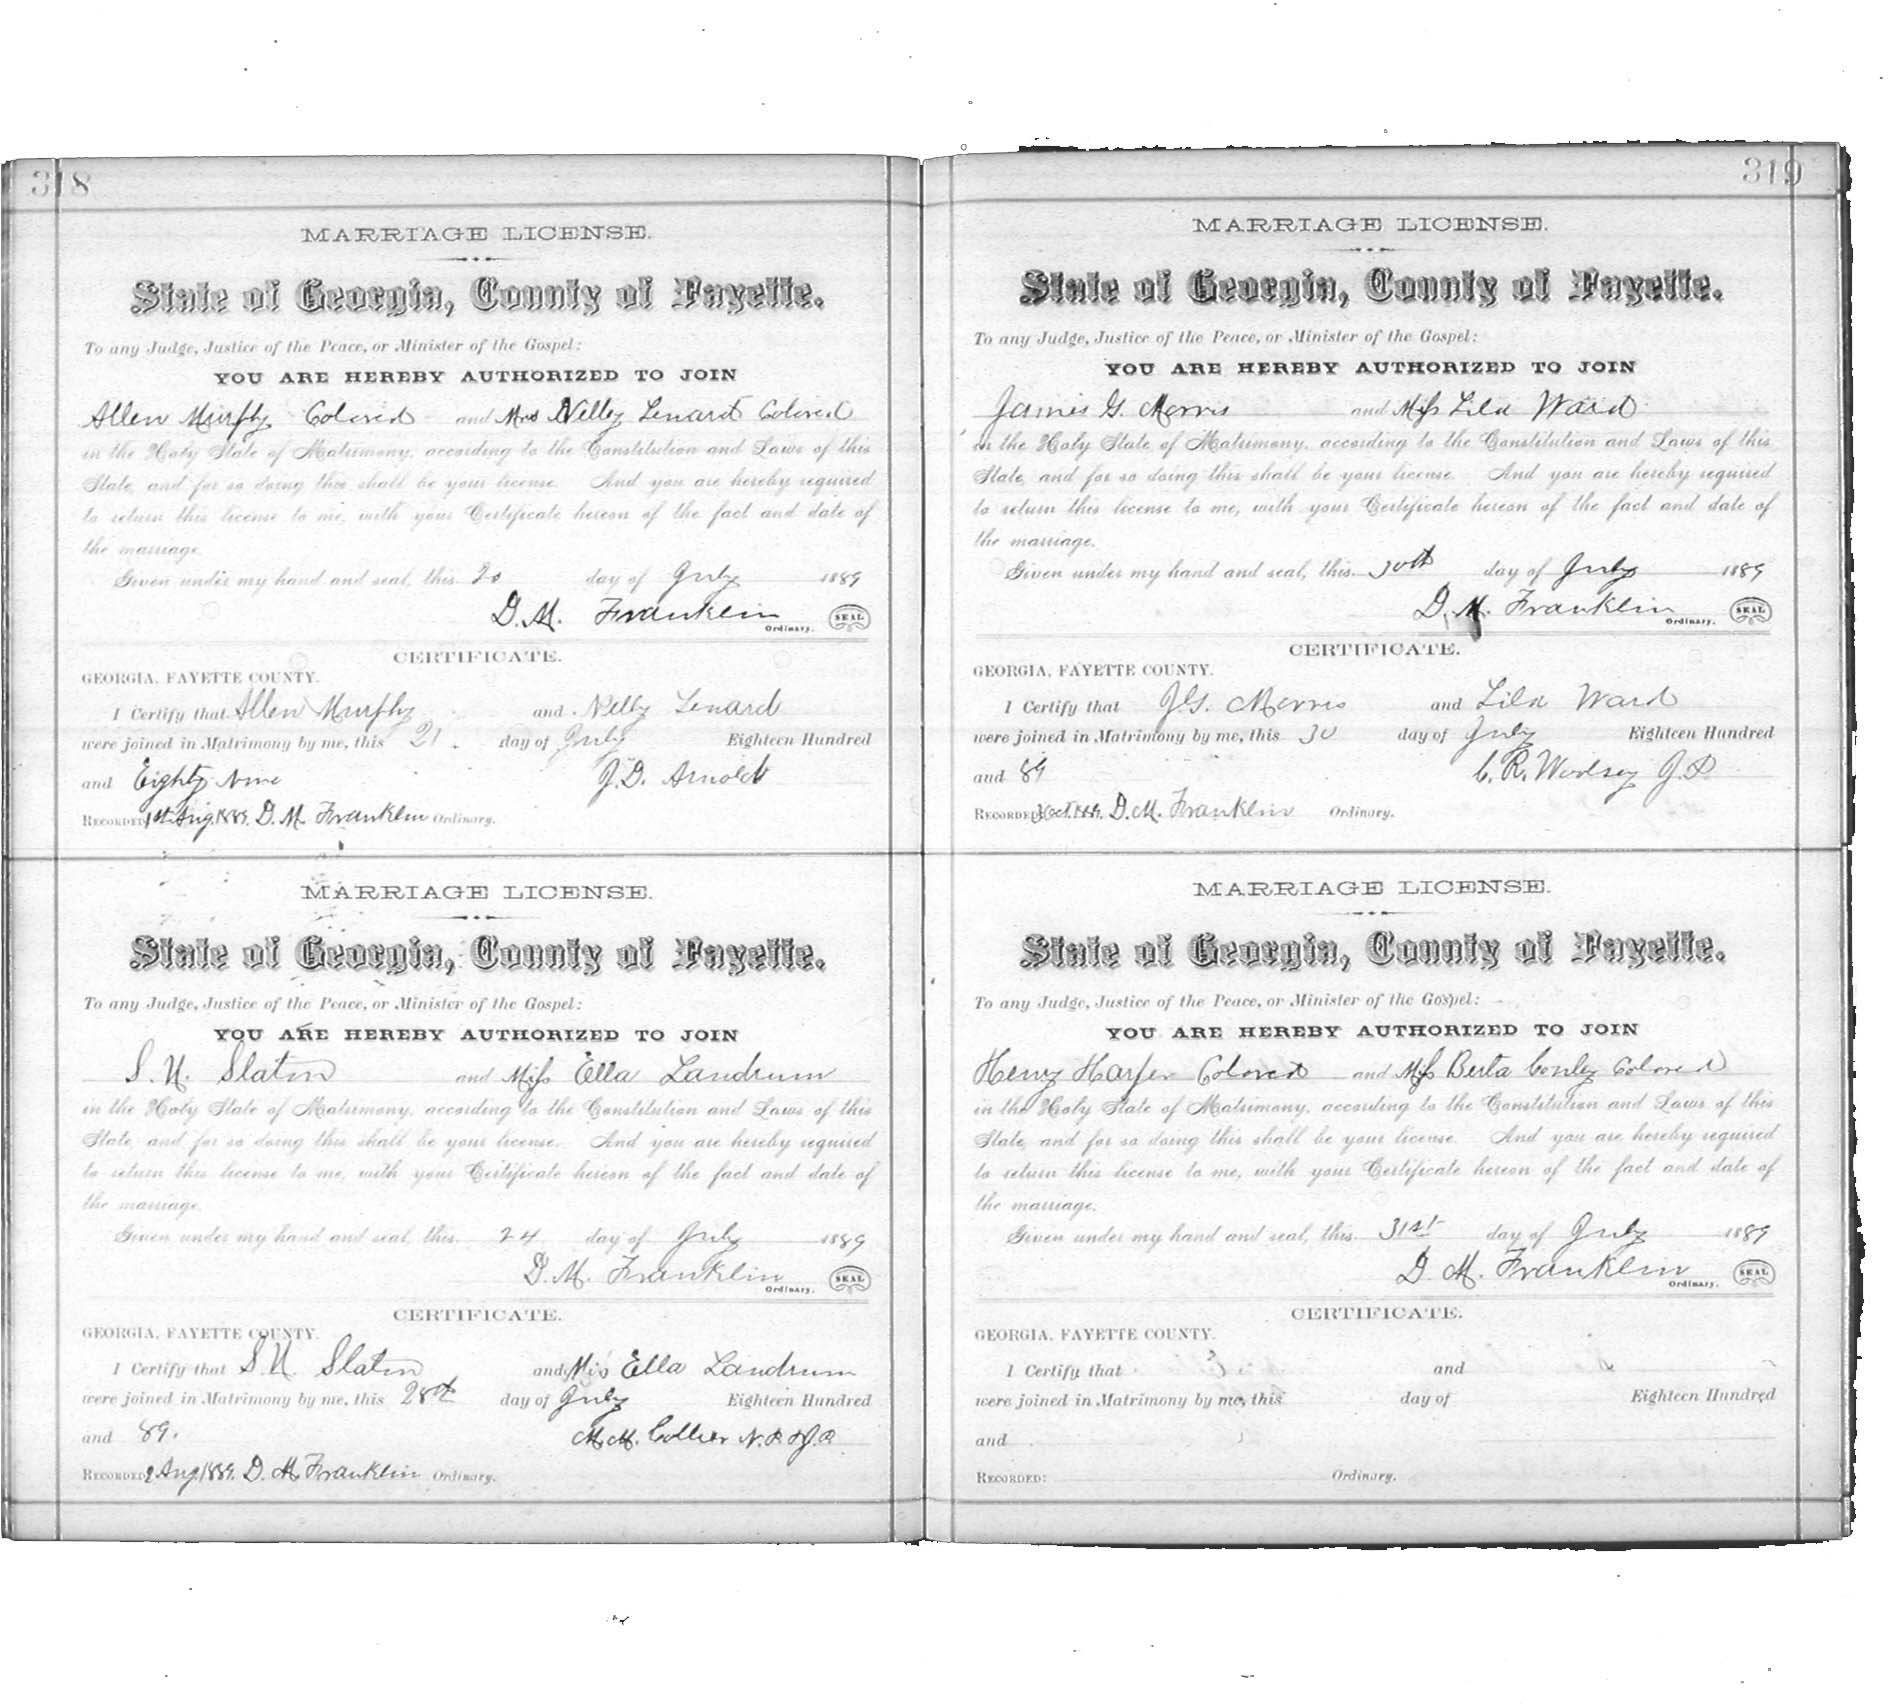 318
MARRIAGE LICENSE.
State of Georgia, County of Fayette.
To any Judge, Justice of the Peace, or Minister of the Gospel:
YOU ARE HEREBY AUTHORIZED TO JOIN
Allen Murphy Colored and Mrs Nelly Lenard Colored
in the Holy State of Matrimony, according to the Constitution and Laws of this
State, and for so doing this shall be your license. And you are hereby required
to return this license to me, with your Certificate hereon of the fact and date of
the marriage.
Given under my hand and seal, this 20 day of July 1889
D. M. Franklin
Ordinary. SEAL
CERTIFICATE.
GEORGIA, FAYETTE COUNTY.
I Certify that Allen Murphy and Nelly Lenard
were joined in Matrimony by me, this 21. day of July Eighteen Hundred
and Eighty Nine J. D. Arnold
RECORDED 1st Aug. 1889. D. M. Franklin Ordinary.
MARRIAGE LICENSE.
State of Georgia, County of Fayette.
To any Judge, Justice of the Peace, or Minister of the Gospel:
YOU ARE HEREBY AUTHORIZED TO JOIN
Slaton and Miss Ella Landrum
in the Holy State of Matrimony, according to the Constitution and Laws of this
State, and for so doing this shall be your license. And you are hereby required
to return this license to me, with your Certificate hereon of the fact and date of
the marriage.
Given under my hand and seal, this 24 day of July 1889
D. M. Franklin
Ordinary. SEAL
CERTIFICATE.
GEORGIA, FAYETTE COUNTY.
I Certify that Slaton and Mis Ella Landrum
were joined in Matrimony by me, this 28th day of July Eighteen Hundred
and 89. M. M. Collier N. P. & J. P.
RECORDED 2 Aug. 1889. D. M. Franklin Ordinary.
319
MARRIAGE LICENSE.
State of Georgia, County of Fayette.
To any Judge, Justice of the Peace, or Minister of the Gospel:
YOU ARE HEREBY AUTHORIZED TO JOIN
James G. Morris and Miss Lila Ward
in the Holy State of Matrimony, according to the Constitution and Laws of this
State, and for so doing this shall be your license. And you are hereby required
to return this license to me, with your Certificate hereon of the fact and date of
the marriage.
Given under my hand and seal, this 30th day of July 1889
D. M. Franklin
Ordinary. SEAL
CERTIFICATE.
GEORGIA, FAYETTE COUNTY.
I Certify that J. G. Morris and Lila Ward
were joined in Matrimony by me, this 30 day of July Eighteen Hundred
and 89 C. R. Woolsey J. P.
RECORDED Oct. 1889. D. M. Franklin Ordinary.
MARRIAGE LICENSE.
State of Georgia, County of Fayette.
To any Judge, Justice of the Peace, or Minister of the Gospel:
YOU ARE HEREBY AUTHORIZED TO JOIN
Henry Harper Colored and Miss Berta Conley Colored
in the Holy State of Matrimony, according to the Constitution and Laws of this
State, and for so doing this shall be your license. And you are hereby required
to return this license to me, with your Certificate hereon of the fact and date of
the marriage.
Given under my hand and seal, this 31st day of July 1889
D. M. Franklin
Ordinary. SEAL
CERTIFICATE.
GEORGIA, FAYETTE COUNTY.
I Certify that and
were joined in Matrimony by me, this day of Eighteen Hundred
and
RECORDED: Ordinary.